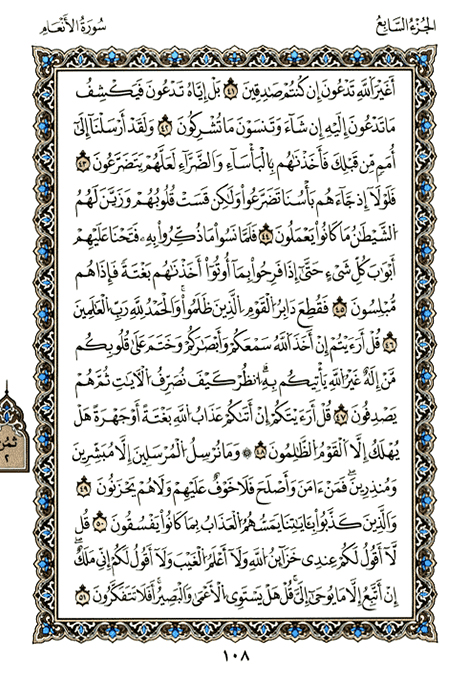 الجُزْءُ السَّابِعُ
سُورَةُ الأَنْعَامِ
أَغَيْرَ اَللَّهِ تَدْعُونَ إِن كُنتُمْ صَٰدِقِينَ ٤١ بَلْ إِيَّاهُ تَدْعُونَ فَيَكْشِفُ
مَا تَدْعُونَ إِلَيْهِ إِن شَآءَ وَتَنسَوْنَ مَا تُشْرِكُونَ ٤٢ وَلَقَدْ أَرْسَلْنَا إِلَىٰٓ
أُمَمٍ مِّن قَبْلِكَ فَأَخَذْنَٰهُم بِالْبَأْسَآءِ وَالضَّرَّآءِ لَعَلَّهُمْ يَتَضَرَّعُونَ ٤٣
فَلَوْلَآ إِذ جَّآءَهُم بَأْسُنَا تَضَرَّعُواْ وَلَٰكِن قَسَتْ قُلُوبُهُمْ وَزَيَّنَ لَهُمُ
اُلشَّيْطَٰنُ مَا كَانُواْ يَعْمَلُونَ ٤٤ فَلَمَّا نَسُواْ مَا ذُكِّرُواْ بِهِۦ فَتَحْنَا عَلَيْهِمْ
أَبْوَٰبَ كُلِّ شَيْءٍ حَتَّىٰٓ إِذَا فَرِحُواْ بِمَآ أُوتُوٓاْ أَخَذْنَٰهُم بَغْتَةً فَإِذَا هُم
مُّبْلِسُونَ ٤٥ فَقُطِعَ دَابِرُ الْقَوْمِ الَّذِينَ ظَلَمُواْ وَالْحَمْدُ لِلَّهِ رَبِّ الْعَٰلَمِينَ
٤٦ قُلْ أَرَءَيْتُمْ إِنْ أَخَذَ اَللَّهُ سَمْعَكُمْ وَأَبْصَٰرَكُمْ وَخَتَمَ عَلَىٰ قُلُوبِكُم
مَّنْ إِلَٰهٌ غَيْرُ اللَّهِ يَأْتِيكُم بِهِۗ اِنظُرْ كَيْفَ نُصَرِّفُ الْأٓيَٰتِ ثُمَّ هُمْ
يَصْدِفُونَ ٤٧ قُلْ أَرَءَيْتَكُمْ إِنْ أَتَىٰكُمْ عَذَابُ اللَّهِ بَغْتَةً أَوْ جَهْرَةً هَلْ
يُهْلَكُ إِلَّا اَلْقَوْمُ الظَّٰلِمُونَ ٤٨ ۞ وَمَا نُرْسِلُ الْمُرْسَلِينَ إِلَّا مُبَشِّرِينَ
وَمُنذِرِينَ فَمَنْ ءَامَنَ وَأَصْلَحَ فَلَا خَوْفٌ عَلَيْهِمْ وَلَا هُمْ يَحْزَنُونَ ٤٩
وَالَّذِينَ كَذَّبُواْ بِـَٔايَٰتِنَا يَمَسُّهُمُ الْعَذَابُ بِمَا كَانُواْ يَفْسُقُونَ ٥٠ قُل
لَّآ أَقُولُ لَكُمْ عِندِي خَزَآئِنُ اللَّهِ وَلَآ أَعْلَمُ الْغَيْبَ وَلَآ أَقُولُ لَكُمْ إِنِّي مَلَكٌ
إِنْ أَتَّبِعُ إِلَّا مَا يُوحَىٰٓ إِلَيَّ قُلْ هَلْ يَسْتَوِي الْأَعْمَىٰ وَالْبَصِيرُ أَفَلَا تَتَفَكَّرُونَ ٥١
ثُمُن
٢
١٠٨